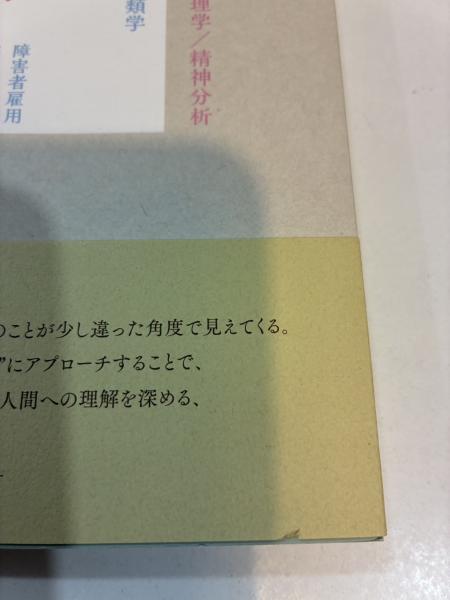 理学／精神分析
類学
障害者雇用
のことが少し違った角度で見えてくる。
”にアプローチすることで、
人間への理解を深める、